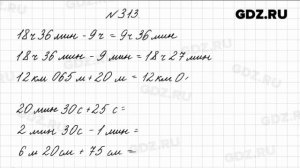 GDZ.RU
N 313
18 ч 36 мин - 9 ч = 9 ч 36 мин
18 ч 36 мин - 9 мин = 18 ч 27 мин
12 км 065 м + 20 м = 12 км 0
20 мин 30 с + 25 с =
2 мин 30 с - 1 мин =
6 м 20 см + 75 см =
GDZ.RU